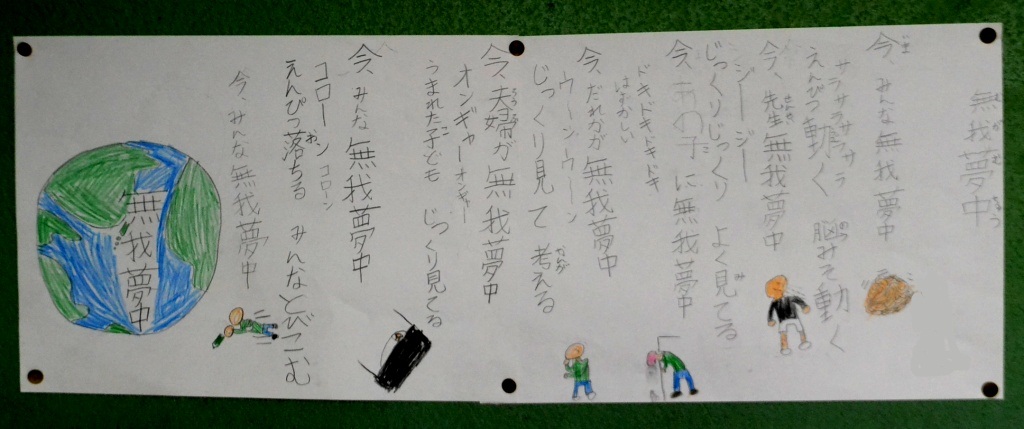 無我夢中
今、みんな無我夢中
サラサラサラサラ
えんぴつ動く 脳みそ動く
今、先生無我夢中
ジージー
じっくりじっくり よく見てる
今、あの子に無我夢中
ドキドキドキドキ
はずかしい
今、だれかが無我夢中
ウーンウーン
じっくり見て 考える
今、夫婦が無我夢中
オンギャーオンギャー
うまれた子ども じっくり見てる
今、みんな無我夢中
コローン コローン
えんぴつ落ちる みんなとびこむ
今、みんな無我夢中
無我夢中